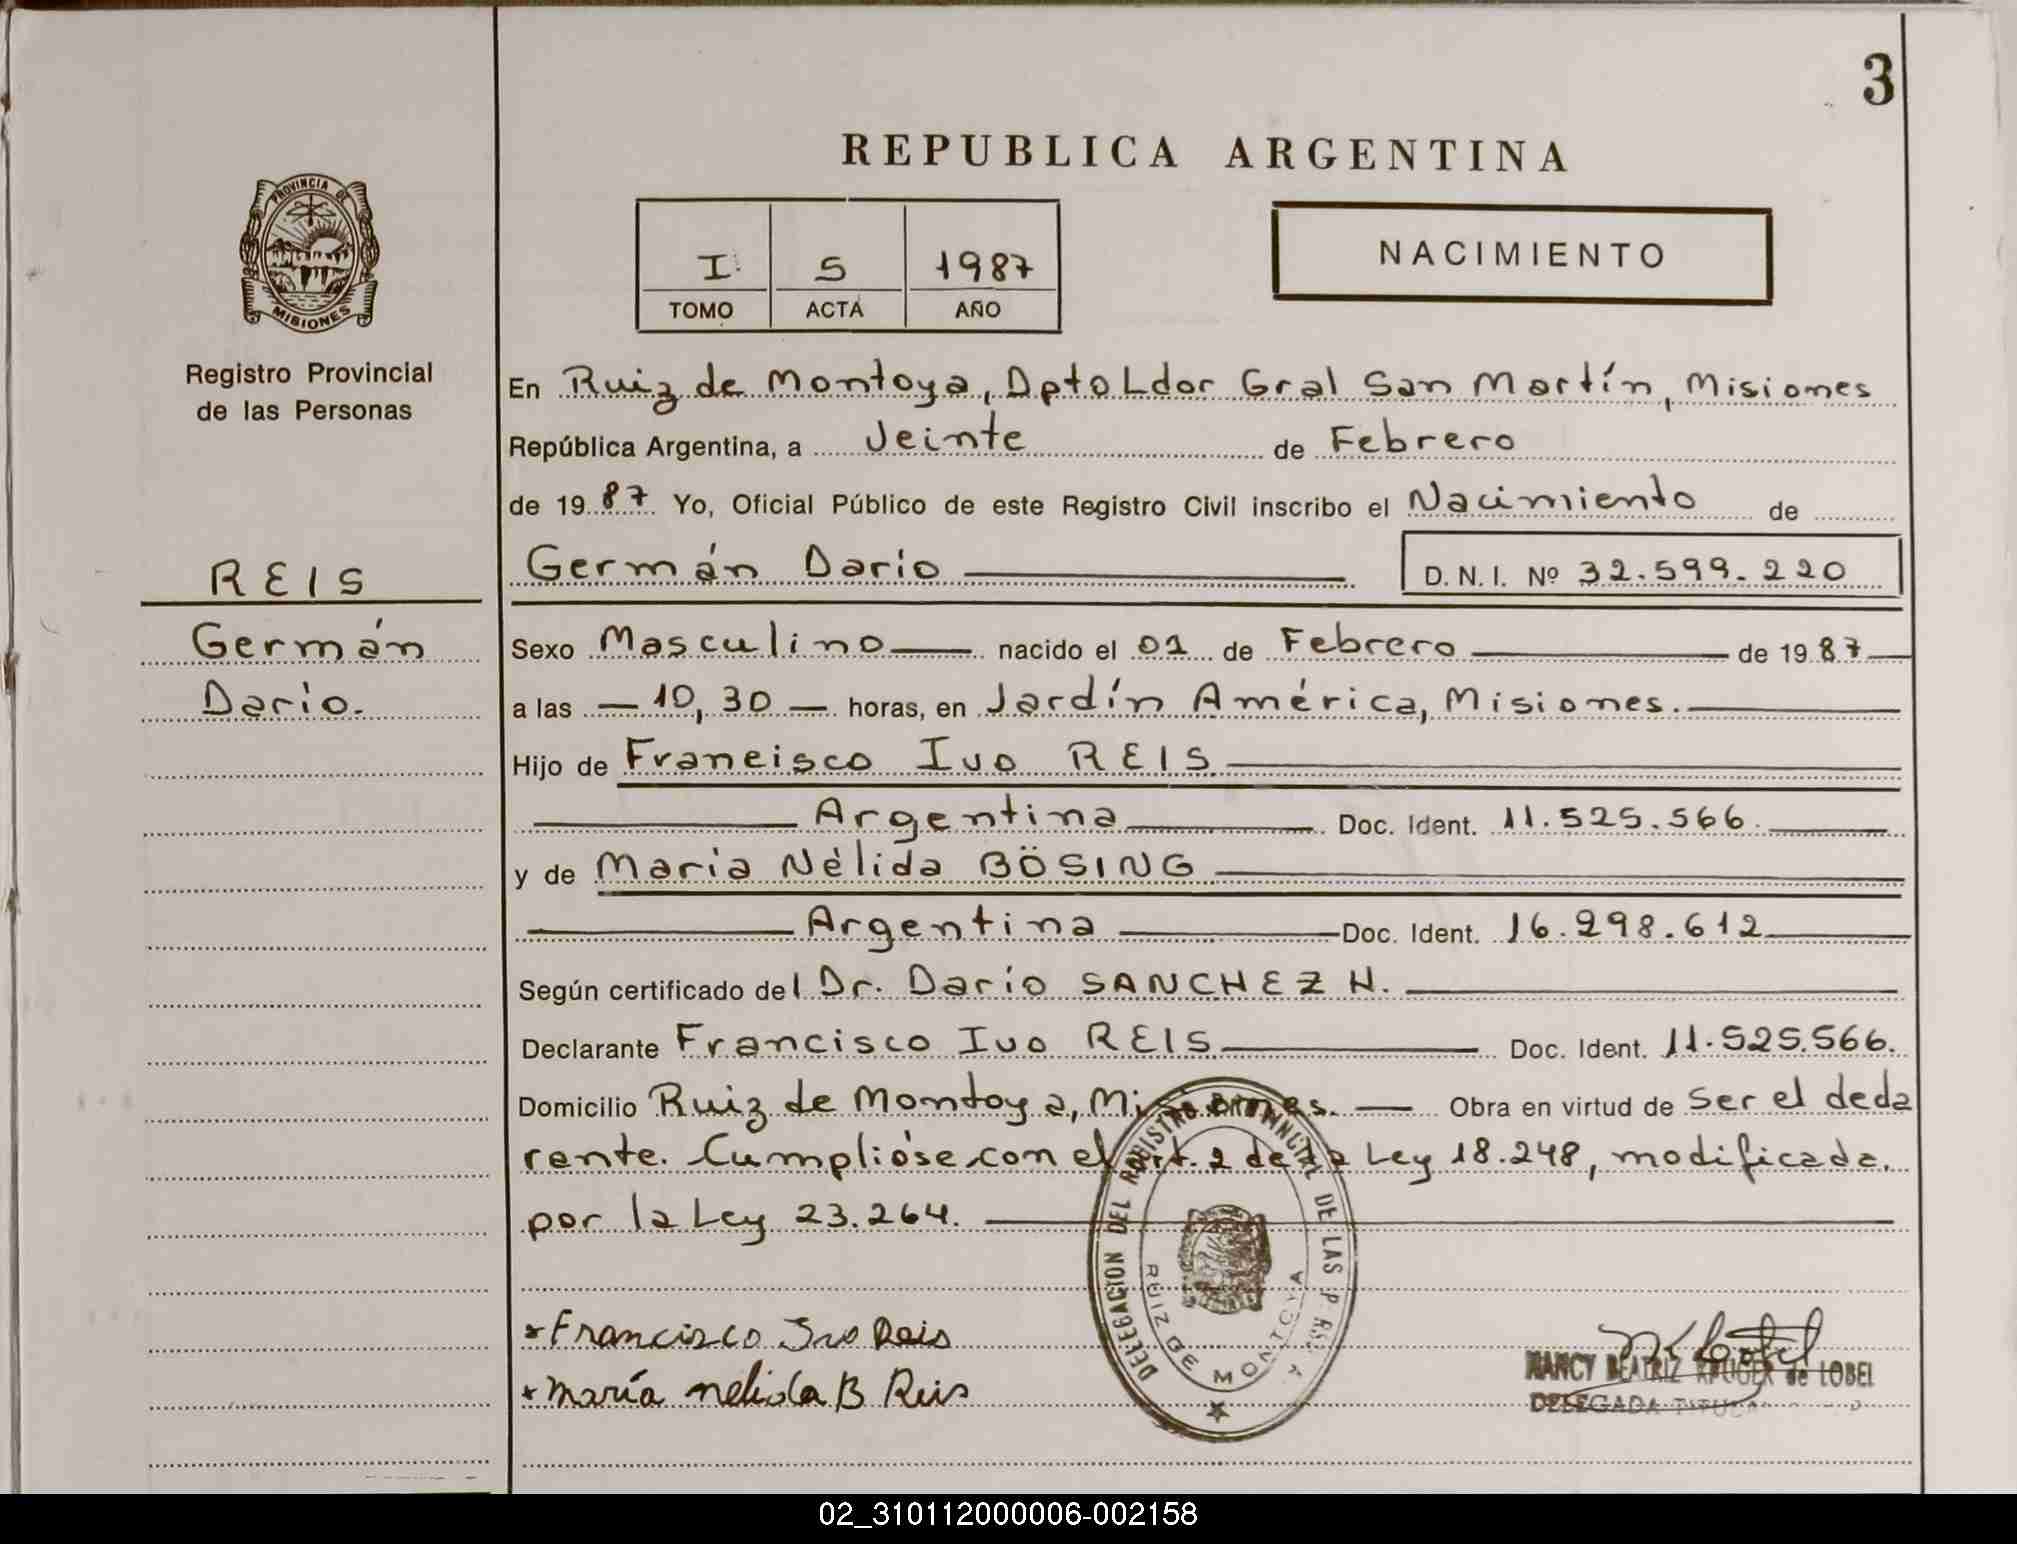 3
REPUBLICA ARGENTINA
PROVINCIA DE
MISIONES
I 5 1987
TOMO ACTA AÑO
NACIMIENTO
Registro Provincial
de las Personas
REIS
Germán
Dario.
En Ruiz de Montoya, Dpto Ldor Gral San Martín, Misiones
República Argentina, a Veinte de Febrero
de 1987 Yo, Oficial Público de este Registro Civil inscribo el Nacimiento de
Germán Dario
D. N. I. Nº 32.599.220
Sexo Masculino nacido el 01 de Febrero de 1987
a las — 10,30 — horas, en Jardín América, Misiones.
Hijo de Francisco Ivo REIS
Argentina Doc. Ident. 11.525.566
y de Maria Nélida BÖSING
Argentina Doc. Ident. 16.298.612
Según certificado del Dr. Darío SANCHEZ H.
Declarante Francisco Ivo REIS Doc. Ident. 11.525.566.
Domicilio Ruiz de Montoya, Misiones. — Obra en virtud de Ser el decla
rante. Cumplióse con el Art. 2 de la Ley 18.248, modificada
por la Ley 23.264.
DELEGACION DEL REGISTRO PROVINCIAL DE LAS PERSONAS
RUIZ DE MONTOYA
Francisco Ivo Reis
María nelida B Reis
NANCY BEATRIZ KRUGER de LOBEL
DELEGADA TITULAR
02_310112000006-002158